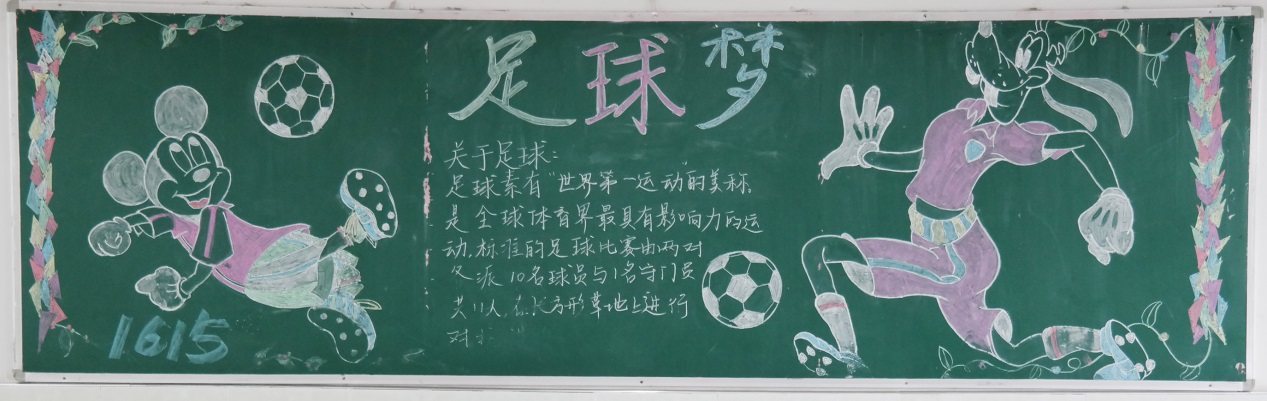 足球梦
关于足球：
足球素有"世界第一运动的美称。
是全球体育界最具有影响力的运
动.标准的足球比赛由两对
各派10名球员与1名守门员
共11人,在长方形草地上进行
对
1615